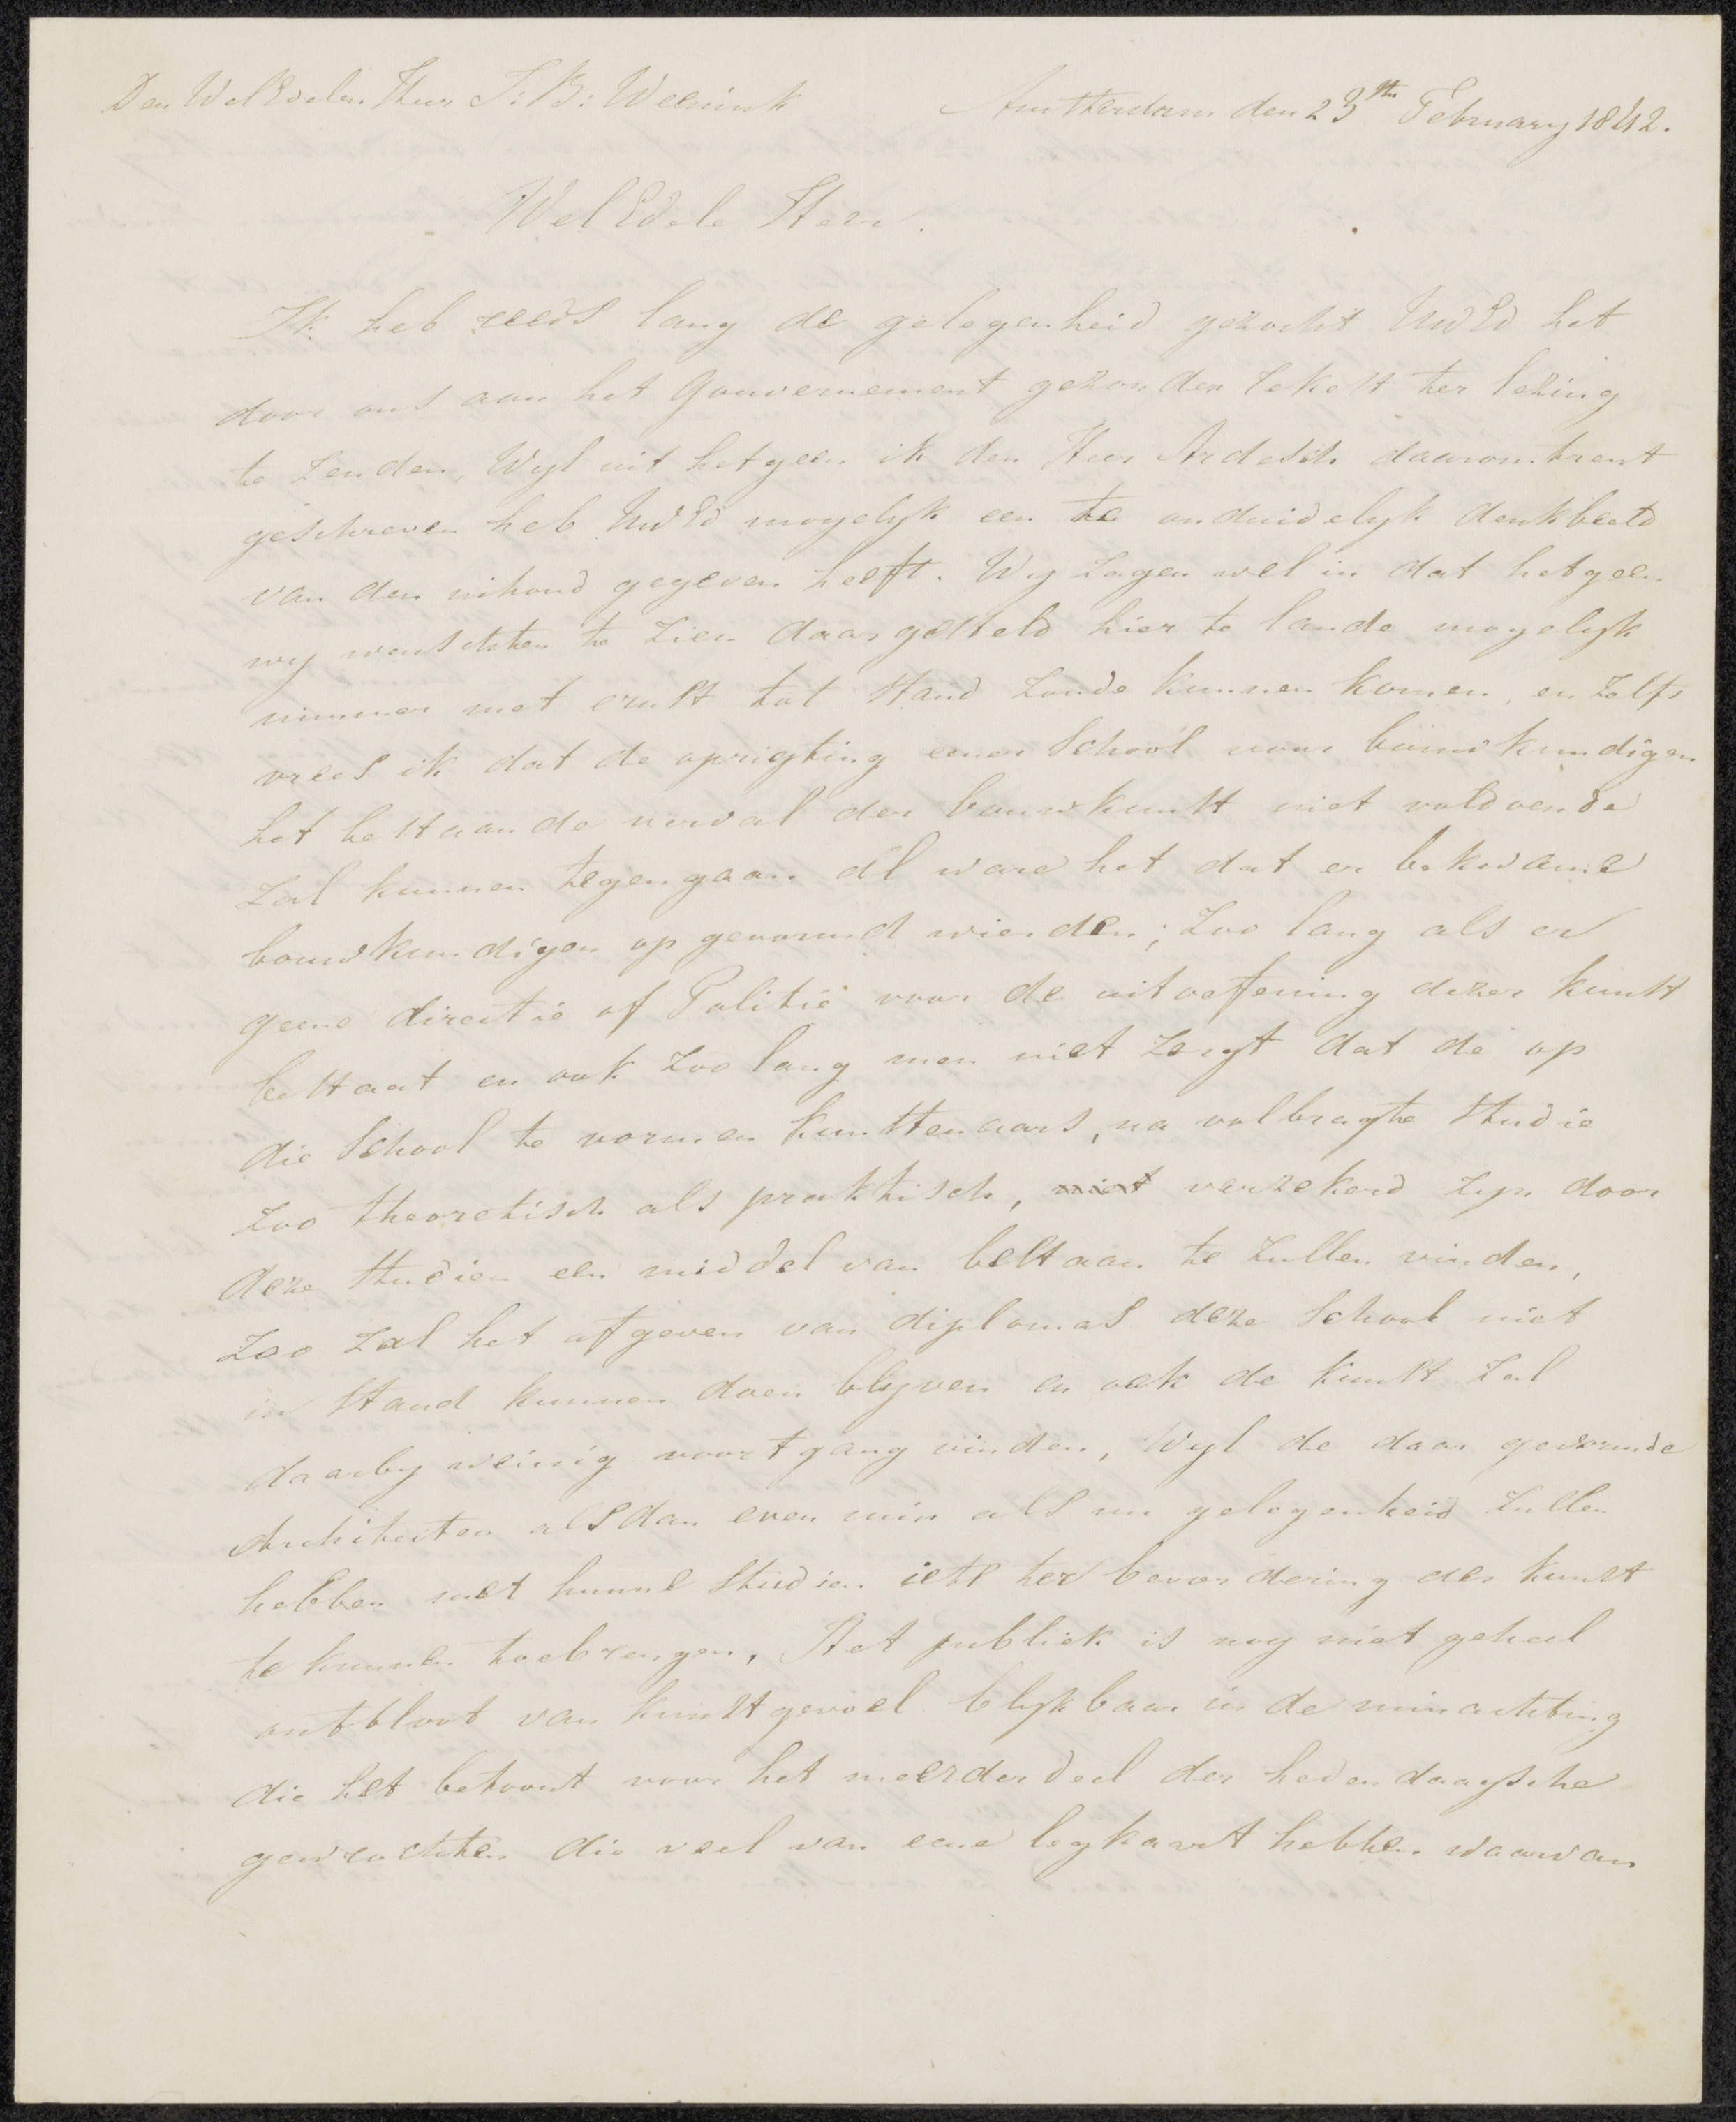 Den WelEdelen Heer F: B: Weenink
Amsterdam den 23ste February 1842.
WelEdele Heer.
Ik heb reeds lang de gelegenheid gezocht UwEd het
door ons aan het Gouvernement gezonden tekst ter lezing
te zenden, Wyl uit hetgeen ik den Heer Ardesch daaromtrent
geschreven heb UwEd mogelyk een te onduidelyk denkbeeld
van den inhoud gegeven heeft. Wy zagen wel in dat hetgeen
wy wenschten te zien daargesteld hier te lande mogelyk
nimmer met ernst tot stand zoude kunnen komen, en zelfs
vrees ik dat de oprigting eener School voor bouwkundigen
het bestaande verval der bouwkunst niet voldoende
zal kunnen tegengaan al ware het dat er bekwame
bouwkundigen op gevormd wierden; zoo lang als er
geene directie of Politie voor de uitoeffening dezer kunst
bestaat en ook zoo lang men niet zorgt dat de op
die School te vormen kunstenaars, na volbragte studie
zoo theoretisch als praktisch, niet verzekerd zyn door
deze studien een middel van bestaan te zullen vinden,
zoo zal het afgeven van diplomas deze School niet
in stand kunnen doen blyven en ook de kunst zal
daarby weinig voortgang vinden, Wyl de daar gevormde
Architecten alsdan even min als nu gelegenheid zullen
hebben met hunne studien iets ter bevordering der kunst
te kunnen toebrengen, Het publiek is nog niet geheel
ontbloot van kunstgevoel blykbaar in de minachting
die het betoont voor het meerderdeel der hedendaagsche
gewrochten die veel van eene legkaart hebben waarvan